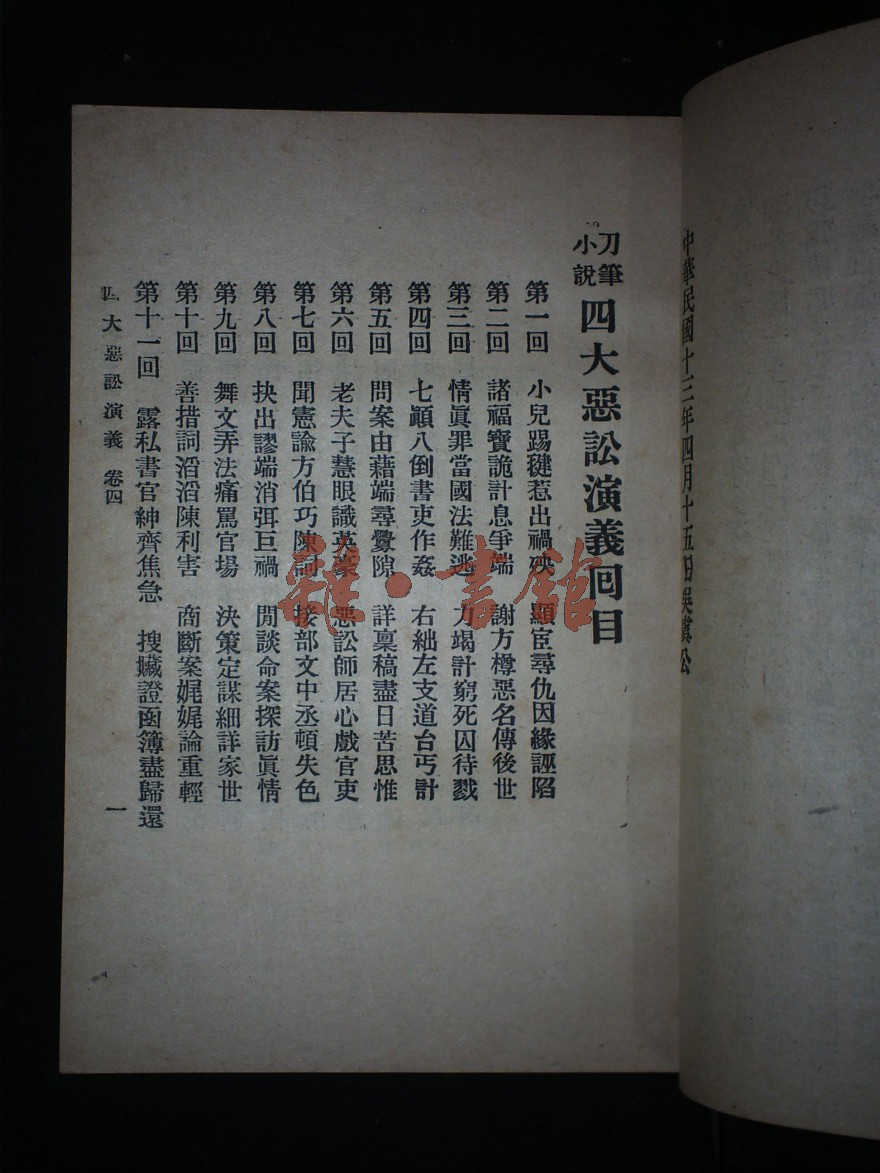 中華民國十三年四月十五日吳虞公
刀筆小說 四大惡訟演義回目
第一回 小兒踢毽惹出禍殃 顯宦尋仇因緣誣陷
第二回 諸福寶詭計息爭端 謝方樽惡名傳後世
第三回 情眞罪當國法難逃 力竭計窮死囚待戮
第四回 七顚八倒書吏作姦 右絀左支道台丐計
第五回 問案由藉端尋釁隙 詳稟稿盡日苦思惟
第六回 老夫子慧眼識英豪 惡訟師居心戲官吏
第七回 聞憲諭方伯巧陳詞 接部文中丞頓失色
第八回 抉出謬端消弭巨禍 閒談命案探訪眞情
第九回 舞文弄法痛罵官場 決策定謀細詳家世
第十回 善措詞滔滔陳利害 商斷案娓娓論重輕
第十一回 露私書官紳齊焦急 搜贓證函簿盡歸還
四大惡訟演義 卷四 一
雜·書館